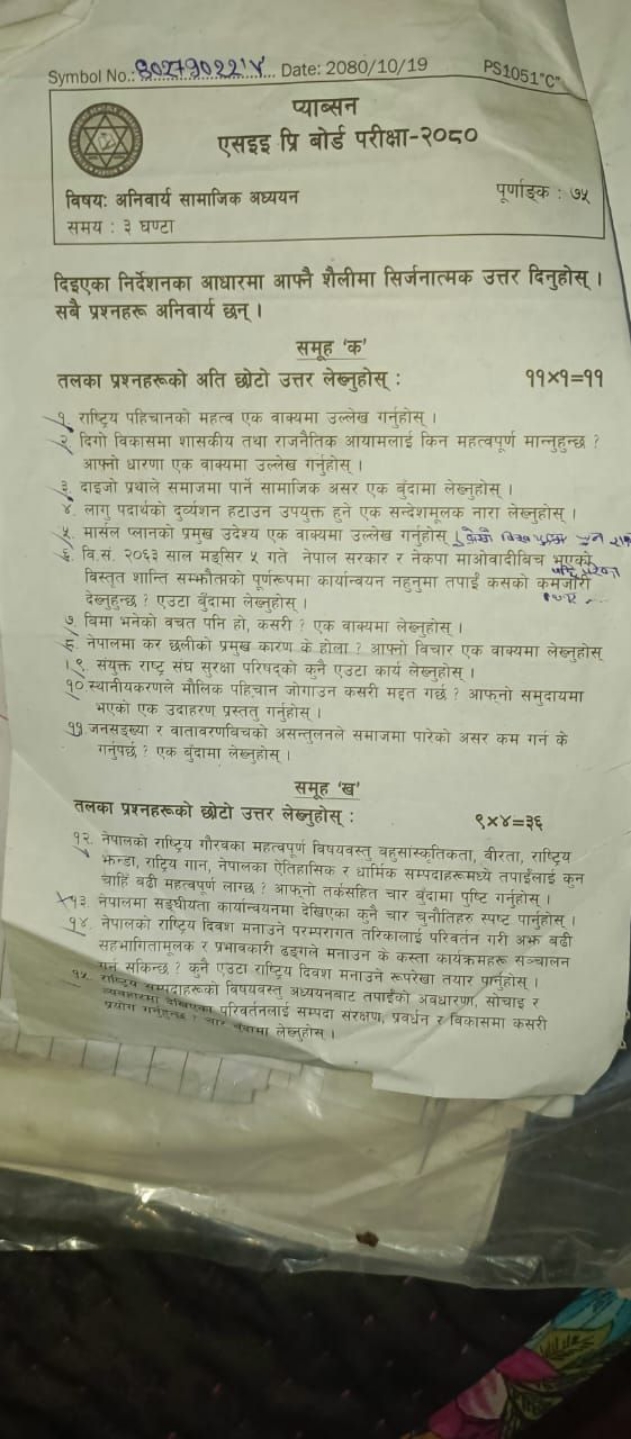 Symbol No.: 802790221'V Date: 2080/10/19 PS1051"C"
प्याब्सन
एसइइ प्रि बोर्ड परीक्षा-२०८०
विषय: अनिवार्य सामाजिक अध्ययन पूर्णाङ्क : ७५
समय : ३ घण्टा
दिइएका निर्देशनका आधारमा आफ्नै शैलीमा सिर्जनात्मक उत्तर दिनुहोस् ।
सबै प्रश्नहरू अनिवार्य छन् ।
समूह 'क'
तलका प्रश्नहरूको अति छोटो उत्तर लेख्नुहोस् : ११×१=११
१. राष्ट्रिय पहिचानको महत्व एक वाक्यमा उल्लेख गर्नुहोस् ।
२. दिगो विकासमा शासकीय तथा राजनैतिक आयामलाई किन महत्वपूर्ण मान्नुहुन्छ ?
आफ्नो धारणा एक वाक्यमा उल्लेख गर्नुहोस् ।
३. दाइजो प्रथाले समाजमा पार्ने सामाजिक असर एक बुँदामा लेख्नुहोस् ।
४. लागु पदार्थको दुर्व्यशन हटाउन उपयुक्त हुने एक सन्देशमूलक नारा लेख्नुहोस् ।
५. मार्सल प्लानको प्रमुख उदेश्य एक वाक्यमा उल्लेख गर्नुहोस् ।
६. वि.सं. २०६३ साल मङ्सिर ५ गते नेपाल सरकार र नेकपा माओवादीबिच भएको
विस्तृत शान्ति सम्झौताको पूर्णरूपमा कार्यान्वयन नहुनुमा तपाईं कसको कमजोरी
देख्नुहुन्छ ? एउटा बुँदामा लेख्नुहोस् ।
७. बिमा भनेको वचत पनि हो, कसरी ? एक वाक्यमा लेख्नुहोस् ।
८. नेपालमा कर छलीको प्रमुख कारण के होला ? आफ्नो विचार एक वाक्यमा लेख्नुहोस्
। ९. संयुक्त राष्ट्र संघ सुरक्षा परिषद्को कुनै एउटा कार्य लेख्नुहोस् ।
१०. स्थानीयकरणले मौलिक पहिचान जोगाउन कसरी मद्दत गर्छ ? आफ्नो समुदायमा
भएको एक उदाहरण प्रस्तुत गर्नुहोस् ।
११. जनसङ्ख्या र वातावरणविचको असन्तुलनले समाजमा पारेको असर कम गर्न के
गर्नुपर्छ ? एक बुँदामा लेख्नुहोस् ।
समूह 'ख'
तलका प्रश्नहरूको छोटो उत्तर लेख्नुहोस् : ९×४=३६
१२. नेपालको राष्ट्रिय गौरवका महत्वपूर्ण विषयवस्तु बहुसांस्कृतिकता, वीरता, राष्ट्रिय
झन्डा, राट्रिय गान, नेपालका ऐतिहासिक र धार्मिक सम्पदाहरूमध्ये तपाईंलाई कुन
चाहिँ बढी महत्वपूर्ण लाग्छ ? आफ्नो तर्कसहित चार बुँदामा पुष्टि गर्नुहोस् ।
१३. नेपालमा सङ्घीयता कार्यान्वयनमा देखिएका कुनै चार चुनौतिहरु स्पष्ट पार्नुहोस् ।
१४. नेपालको राष्ट्रिय दिवश मनाउने परम्परागत तरिकालाई परिवर्तन गरी अझ बढी
सहभागितामूलक र प्रभावकारी ढङ्गले मनाउन के कस्ता कार्यक्रमहरू सञ्चालन
गर्न सकिन्छ ? कुनै एउटा राष्ट्रिय दिवश मनाउने रूपरेखा तयार पार्नुहोस् ।
१५. राष्ट्रिय सम्पदाहरूको विषयवस्तु अध्ययनबाट तपाईंको अवधारणा, सोचाइ र
व्यवहारमा देखिएका परिवर्तनलाई सम्पदा संरक्षण, प्रवर्धन र विकासमा कसरी
प्रयोग गर्नुहुन्छ ? चार बुँदामा लेख्नुहोस् ।